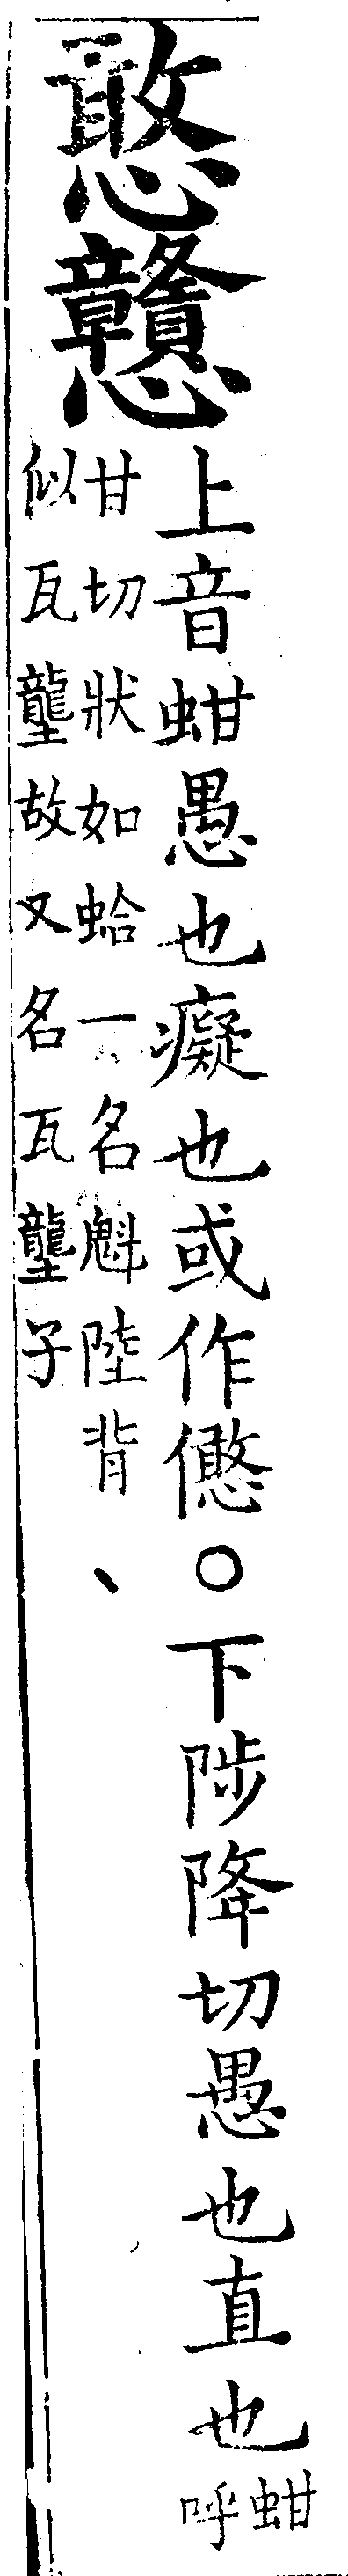 憨戇
上音蚶愚也癡也或作㒈○下陟降切愚也直也
蚶
呼
甘切狀如蛤一名魁陸背、
似瓦壟故又名瓦壟子